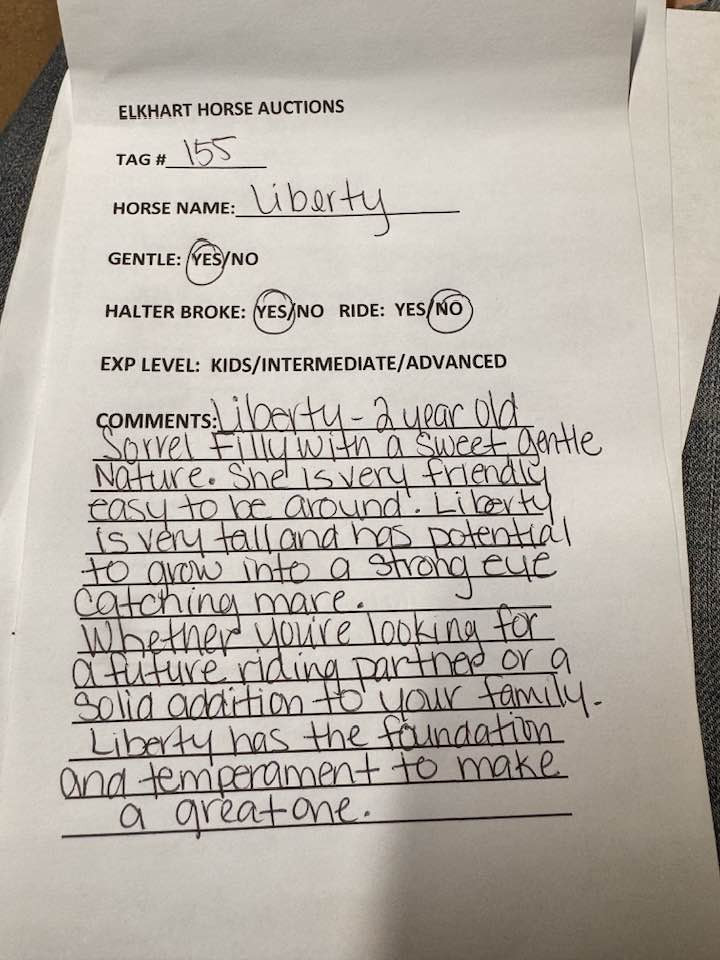 ELKHART HORSE AUCTIONS
TAG # 155
HORSE NAME: Liberty
GENTLE: YES/NO
HALTER BROKE: YES/NO RIDE: YES/NO
EXP LEVEL: KIDS/INTERMEDIATE/ADVANCED
COMMENTS: Liberty - 2 year old
Sorrel Filly with a sweet gentle
Nature. She is very friendly
easy to be around. Liberty
is very tall and has potential
to grow into a strong eye
catching mare.
Whether you're looking for
a future riding partner or a
solid addition to your family.
Liberty has the foundation
and temperament to make
a great one.